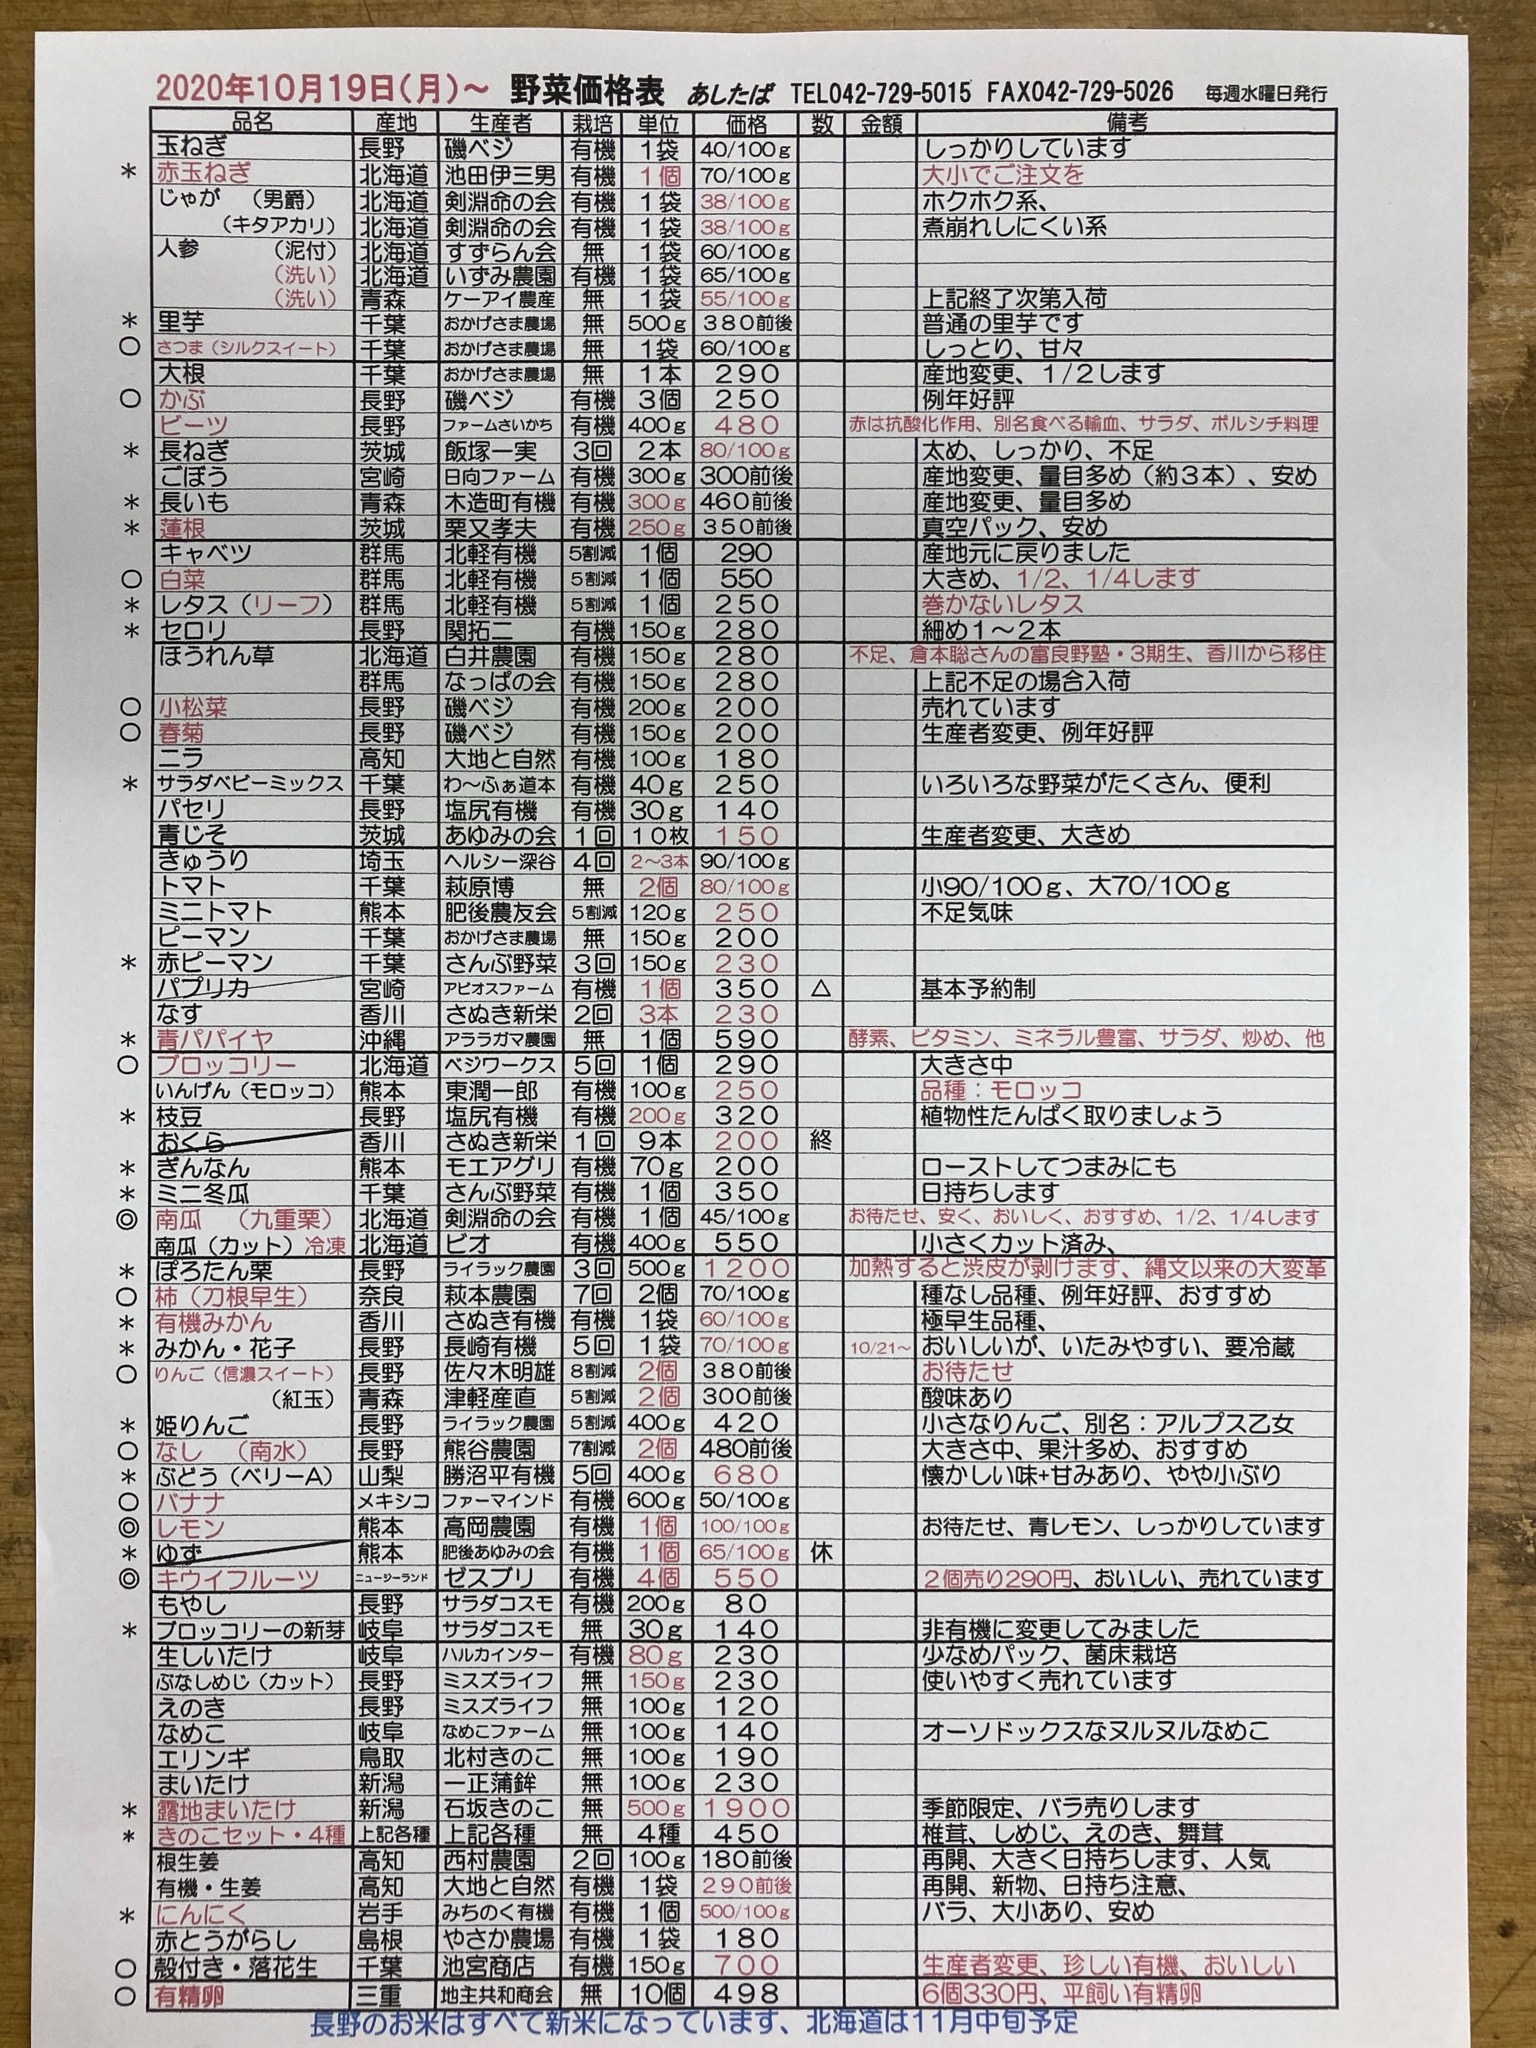 2020年10月19日(月)～ 野菜価格表 あしたば TEL042-729-5015 FAX042-729-5026 毎週水曜日発行
品名 産地 生産者 栽培 単位 価格 数 金額 備考
玉ねぎ 長野 磯ベジ 有機 1袋 40/100g しっかりしています
* 赤玉ねぎ 北海道 池田伊三男 有機 1個 70/100g 大小でご注文を
じゃが (男爵) 北海道 剣淵命の会 有機 1袋 38/100g ホクホク系、
(キタアカリ) 北海道 剣淵命の会 有機 1袋 38/100g 煮崩れしにくい系
人参 (泥付) 北海道 すずらん会 無 1袋 60/100g
(洗い) 北海道 いずみ農園 有機 1袋 65/100g
(洗い) 青森 ケーアイ農産 無 1袋 55/100g 上記終了次第入荷
* 里芋 千葉 おかげさま農場 無 500g 380前後 普通の里芋です
○ さつま(シルクスイート) 千葉 おかげさま農場 無 1袋 60/100g しっとり、甘々
大根 千葉 おかげさま農場 無 1本 290 産地変更、1/2します
○ かぶ 長野 磯ベジ 有機 3個 250 例年好評
ビーツ 長野 ファームさいかち 有機 400g 480 赤は抗酸化作用、別名食べる輸血、サラダ、ボルシチ料理
* 長ねぎ 茨城 飯塚一実 3回 2本 80/100g 太め、しっかり、不足
ごぼう 宮崎 日向ファーム 有機 300g 300前後 産地変更、量目多め(約3本)、安め
* 長いも 青森 木造町有機 有機 300g 460前後 産地変更、量目多め
* 蓮根 茨城 栗又孝夫 有機 250g 350前後 真空パック、安め
キャベツ 群馬 北軽有機 5割減 1個 290 産地元に戻りました
○ 白菜 群馬 北軽有機 5割減 1個 550 大きめ、1/2、1/4します
* レタス(リーフ) 群馬 北軽有機 5割減 1個 250 巻かないレタス
* セロリ 長野 関拓二 有機 150g 280 細め1～2本
ほうれん草 北海道 白井農園 有機 150g 280 不足、倉本聡さんの富良野塾・3期生、香川から移住
群馬 なっぱの会 有機 150g 280 上記不足の場合入荷
○ 小松菜 長野 磯ベジ 有機 200g 200 売れています
○ 春菊 長野 磯ベジ 有機 150g 200 生産者変更、例年好評
ニラ 高知 大地と自然 有機 100g 180
* サラダベビーミックス 千葉 わ～ふぁ道本 有機 40g 250 いろいろな野菜がたくさん、便利
パセリ 長野 塩尻有機 有機 30g 140
青じそ 茨城 あゆみの会 1回 10枚 150 生産者変更、大きめ
きゅうり 埼玉 ヘルシー深谷 4回 2～3本 90/100g
トマト 千葉 萩原博 無 2個 80/100g 小90/100g、大70/100g
ミニトマト 熊本 肥後農友会 5割減 120g 250 不足気味
ピーマン 千葉 おかげさま農場 無 150g 200
* 赤ピーマン 千葉 さんぶ野菜 3回 150g 230
パプリカ 宮崎 アビオスファーム 有機 1個 350 △ 基本予約制
なす 香川 さぬき新栄 2回 3本 230
* 青パパイヤ 沖縄 アララガマ農園 無 1個 590 酵素、ビタミン、ミネラル豊富、サラダ、炒め、他
○ ブロッコリー 北海道 ベジワークス 5回 1個 290 大きさ中
いんげん(モロッコ) 熊本 東潤一郎 有機 100g 250 品種:モロッコ
* 枝豆 長野 塩尻有機 有機 200g 320 植物性たんぱく取りましょう
おくら 香川 さぬき新栄 1回 9本 200 終
* ぎんなん 熊本 モエアグリ 有機 70g 200 ローストしてつまみにも
* ミニ冬瓜 千葉 さんぶ野菜 有機 1個 350 日持ちします
◎ 南瓜 (九重栗) 北海道 剣淵命の会 有機 1個 45/100g お待たせ、安く、おいしく、おすすめ、1/2、1/4します
南瓜(カット)冷凍 北海道 ビオ 有機 400g 550 小さくカット済み、
* ぽろたん栗 長野 ライラック農園 3回 500g 1200 加熱すると渋皮が剥けます、縄文以来の大変革
○ 柿(刀根早生) 奈良 萩本農園 7回 2個 70/100g 種なし品種、例年好評、おすすめ
* 有機みかん 香川 さぬき有機 有機 1袋 60/100g 極早生品種、
* みかん・花子 長野 長崎有機 5回 1袋 70/100g 10/21～ おいしいが、いたみやすい、要冷蔵
○ りんご(信濃スイート) 長野 佐々木明雄 8割減 2個 380前後 お待たせ
(紅玉) 青森 津軽産直 5割減 2個 300前後 酸味あり
* 姫りんご 長野 ライラック農園 5割減 400g 420 小さなりんご、別名:アルプス乙女
○ なし (南水) 長野 熊谷農園 7割減 2個 480前後 大きさ中、果汁多め、おすすめ
* ぶどう(ベリーA) 山梨 勝沼平有機 5回 400g 680 懐かしい味+甘みあり、やや小ぶり
○ バナナ メキシコ ファーマインド 有機 600g 50/100g
◎ レモン 熊本 高岡農園 有機 1個 100/100g お待たせ、青レモン、しっかりしています
* ゆず 熊本 肥後あゆみの会 有機 1個 65/100g 休
◎ キウイフルーツ ニュージーランド ゼスプリ 有機 4個 550 2個売り290円、おいしい、売れています
もやし 長野 サラダコスモ 有機 200g 80
* ブロッコリーの新芽 岐阜 サラダコスモ 無 30g 140 非有機に変更してみました
生しいたけ 岐阜 ハルカインター 有機 80g 230 少なめパック、菌床栽培
ぶなしめじ(カット) 長野 ミスズライフ 無 150g 230 使いやすく売れています
えのき 長野 ミスズライフ 無 100g 120
なめこ 岐阜 なめこファーム 無 100g 140 オーソドックスなヌルヌルなめこ
エリンギ 鳥取 北村きのこ 無 100g 190
まいたけ 新潟 一正蒲鉾 無 100g 230
* 露地まいたけ 新潟 石坂きのこ 無 500g 1900 季節限定、バラ売りします
* きのこセット・4種 上記各種 上記各種 無 4種 450 椎茸、しめじ、えのき、舞茸
根生姜 高知 西村農園 2回 100g 180前後 再開、大きく日持ちします、人気
有機・生姜 高知 大地と自然 有機 1袋 290前後 再開、新物、日持ち注意、
* にんにく 岩手 みちのく有機 有機 1個 500/100g バラ、大小あり、安め
赤とうがらし 島根 やさか農場 有機 1袋 180
○ 殻付き・落花生 千葉 池宮商店 有機 150g 700 生産者変更、珍しい有機、おいしい
○ 有精卵 三重 地主共和商会 無 10個 498 6個330円、平飼い有精卵
長野のお米はすべて新米になっています、北海道は11月中旬予定